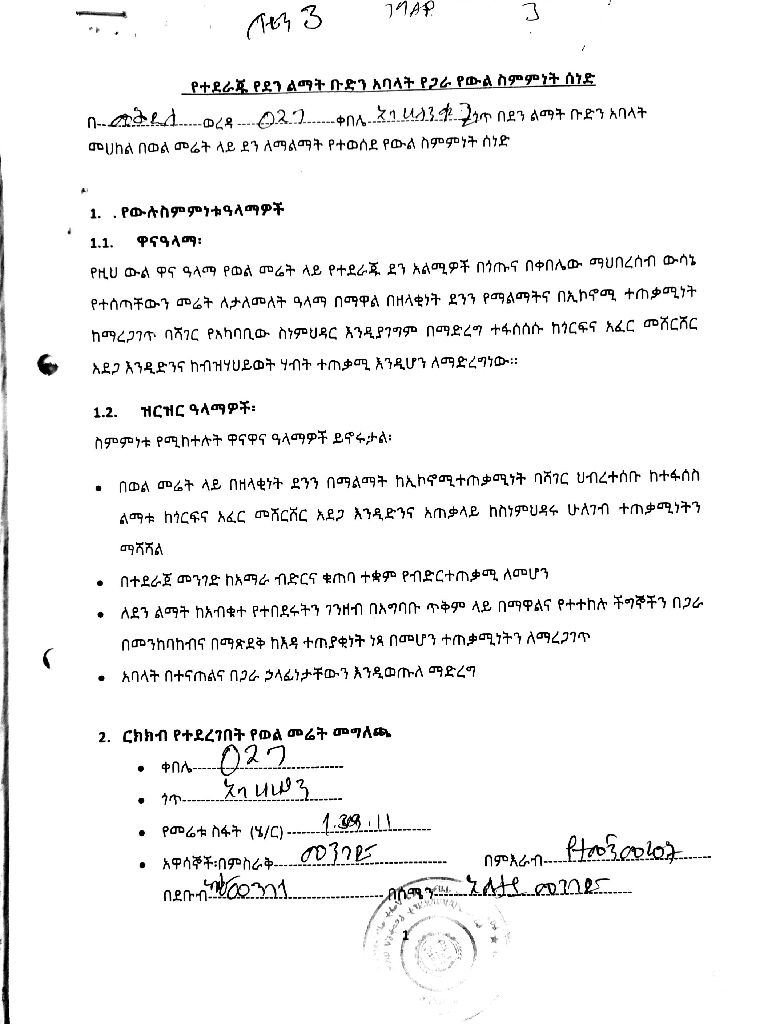 3
የተደራጁ የደን ልማት ቡድን አባላት የጋራ የውል ስምምነት ሰነድ
በ ወረዳ ቀበሌ ጎጥ በደን ልማት ቡድን አባላት
መሀከል በወል መሬት ላይ ደን ለማልማት የተወሰደ የውል ስምምነት ሰነድ
1. . የውሉስምምነቱዓላማዎች
1.1. ዋናዓላማ፡
የዚህ ውል ዋና ዓላማ የወል መሬት ላይ የተደራጁ ደን አልሚዎች በጎጡና በቀበሌው ማህበረሰብ ውሳኔ
የተሰጣቸውን መሬት ለታለመለት ዓላማ በማዋል በዘላቂነት ደንን የማልማትና በኢኮኖሚ ተጠቃሚነት
ከማረጋገጥ ባሻገር የአካባቢው ስነምህዳር እንዲያገግም በማድረግ ተፋሰሰሱ ከጎርፍና አፈር መሸርሸር
አደጋ እንዲድንና ከብዝሃህይወት ሃብት ተጠቃሚ እንዲሆን ለማድረግነው።
1.2. ዝርዝር ዓላማዎች፡
ስምምነቱ የሚከተሉት ዋናዋና ዓላማዎች ይኖሩታል፡
• በወል መሬት ላይ በዘላቂነት ደንን በማልማት ከኢኮኖሚተጠቃሚነት ባሻገር ህብረተሰቡ ከተፋሰስ
ልማቱ ከጎርፍና አፈር መሸርሸር አደጋ እንዲድንና አጠቃላይ ከስነምህዳሩ ሁለገብ ተጠቃሚነትን
ማሻሻል
• በተደራጀ መንገድ ከአማራ ብድርና ቁጠባ ተቋም የብድርተጠቃሚ ለመሆን
• ለደን ልማት ከአብቁተ የተበደሩትን ገንዘብ በአግባቡ ጥቅም ላይ በማዋልና የተተከሉ ችግኞችን በጋራ
በመንከባከብና በማጽደቅ ከእዳ ተጠያቂነት ነጻ በመሆን ተጠቃሚነትን ለማረጋገጥ
• አባላት በተናጠልና በጋራ ኃላፊነታቸውን እንዲወጡለ ማድረግ
2. ርክክብ የተደረገበት የወል መሬት መግለጫ
• ቀበሌ
• ጎጥ
• የመሬቱ ስፋት (ሄ/ር)
• አዋሳኞች፡በምስራቅ መንገድ በምእራብ
በደቡብ በሰሜን መንገድ
1